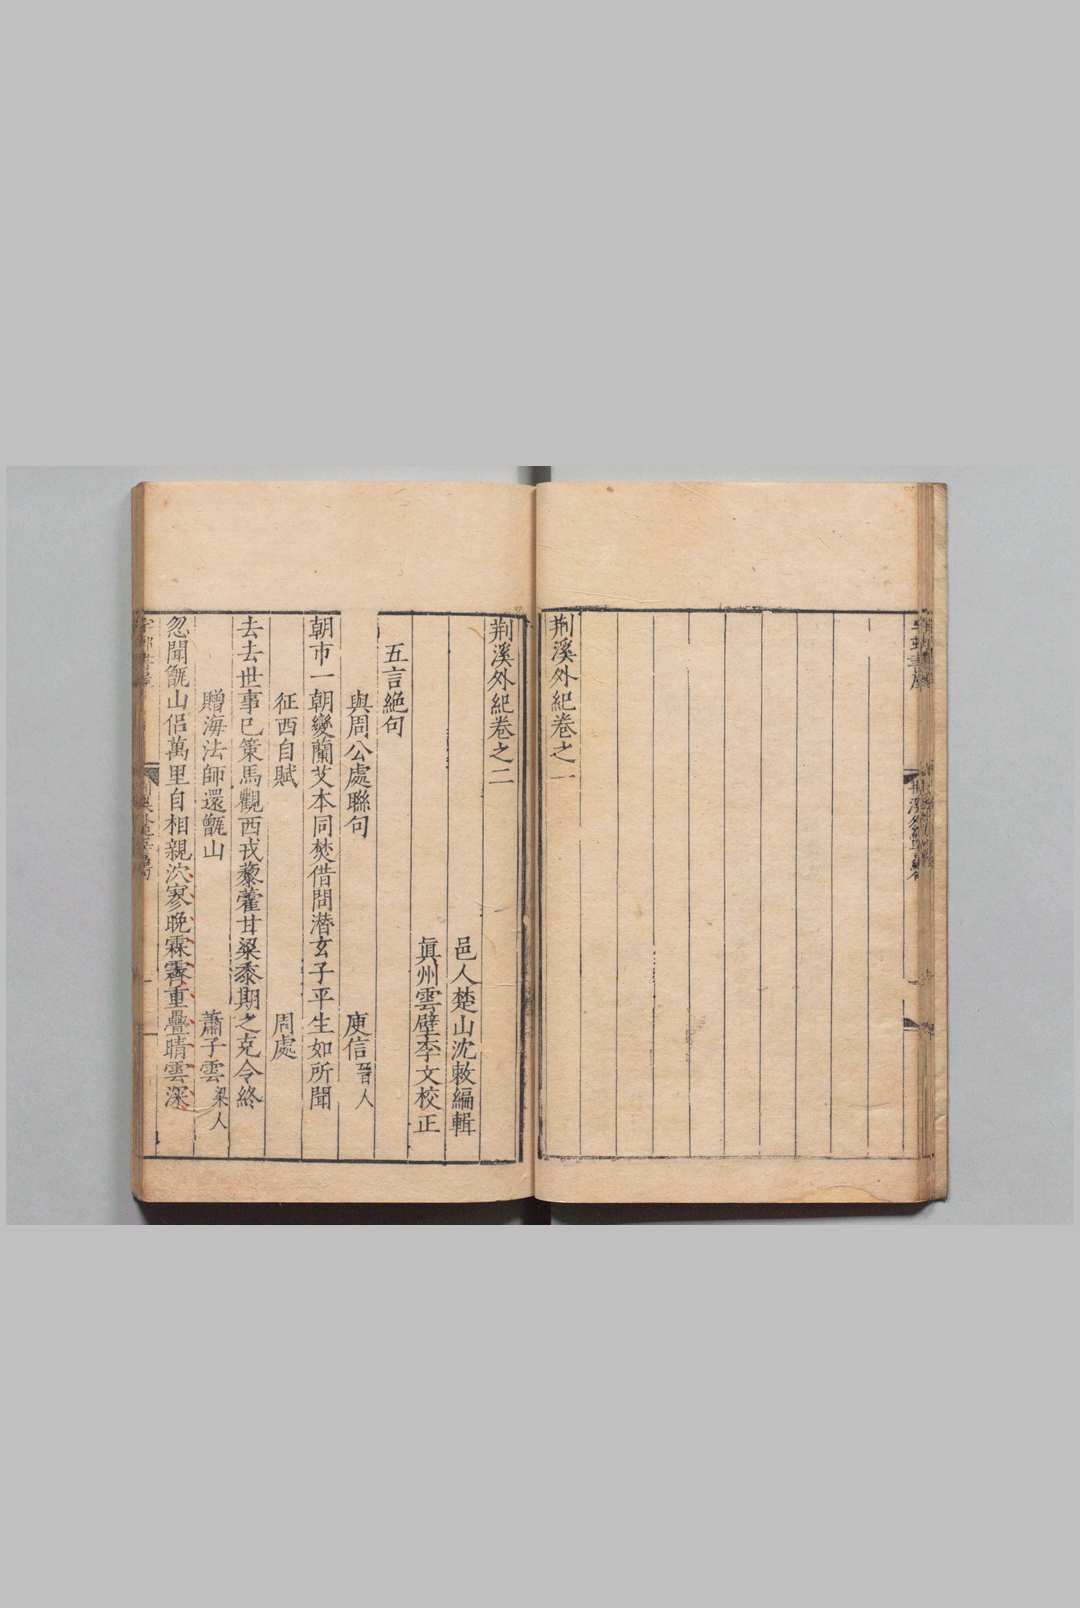 荆溪外紀卷之一
荆溪外紀卷之二
邑人楚山沈敕編輯
眞州雲壁李文校正
五言絕句
與周公處聯句 庾信晉人
朝市一朝變蘭艾本同焚借問潛玄子平生如所聞
征西自賦 周處
去去世事已策馬觀西戎藜藿甘粱黍期之克令終
贈海法師還甑山 蕭子雲梁人
忽聞甑山侶萬里自相親沈寥晩霖霽重疊晴雲深